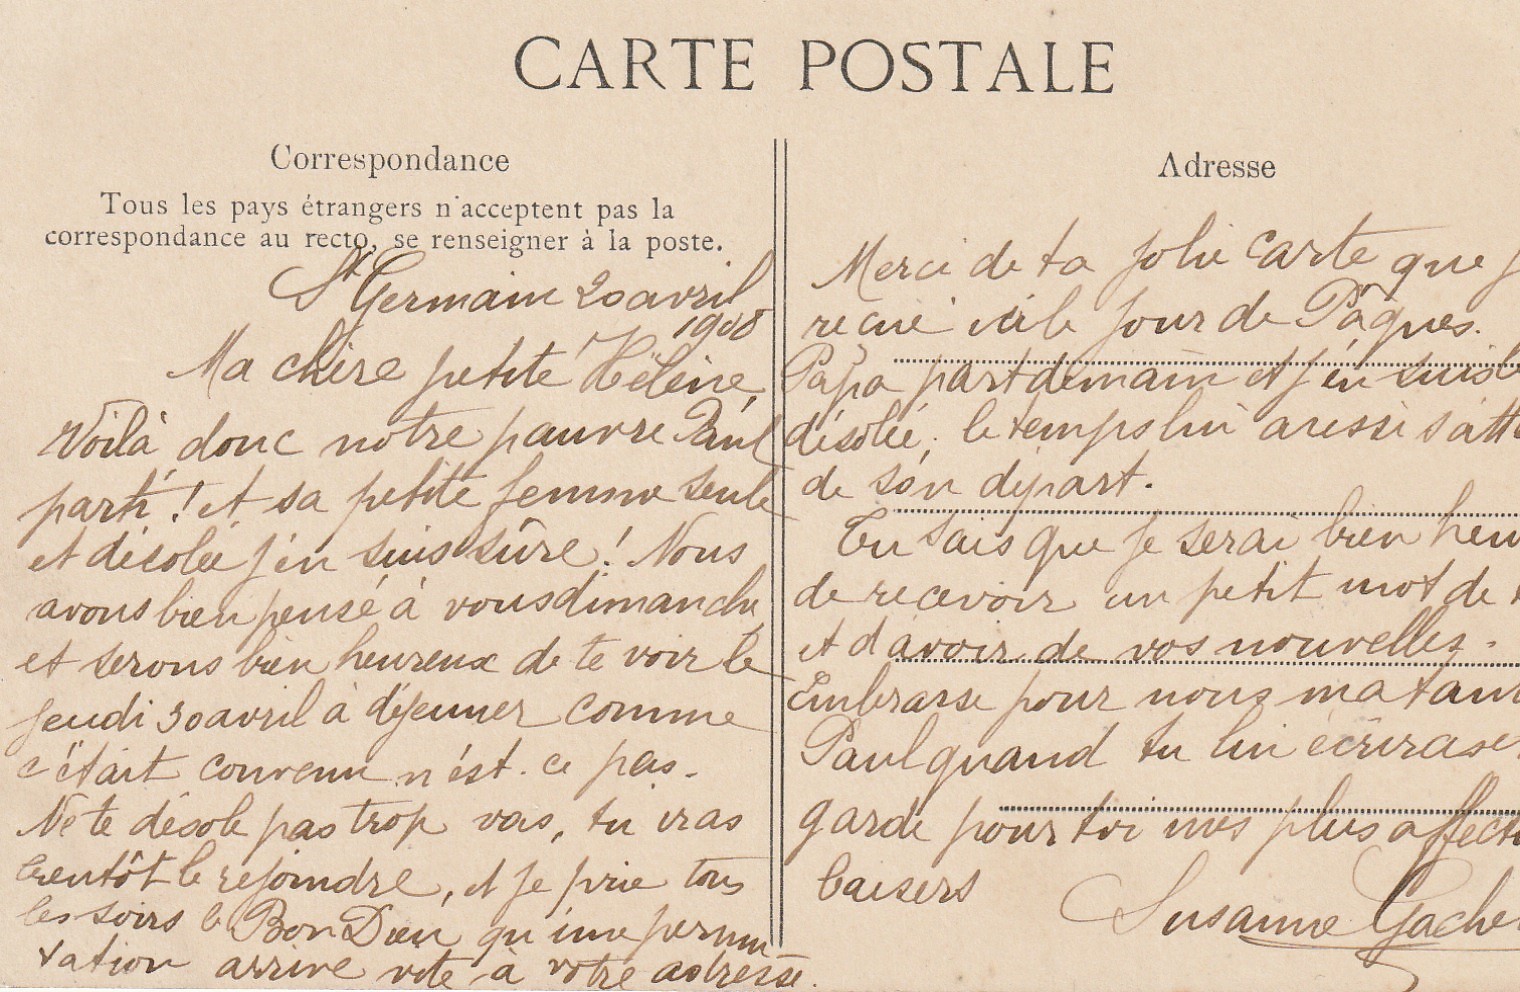 CARTE POSTALE
Correspondance
Tous les pays étrangers n'acceptent pas la
correspondance au recto, se renseigner à la poste.
St Germain 20 avril
1908
Ma chère petite Hélène,
Voilà donc notre pauvre Paul
parti ! et sa petite femme seule
et désolée j'en suis sûre ! Nous
avons bien pensé à vous dimanche
et serons bien heureux de te voir le
jeudi 30 avril à déjeuner comme
c'était convenu n'est-ce pas.
Ne te désole pas trop vas, tu iras
bientôt le rejoindre, et je prie tous
les soirs le Bon Dieu qu'une permu
tation arrive vite à votre adresse.
Adresse
Merci de ta jolie carte que j
reçue ici le jour de Pâques.
Papa part demain et j'en suis b
désolée, le temps lui aussi s'att
de son départ.
Tu sais que je serai bien heu
de recevoir un petit mot de t
et d'avoir de vos nouvelles.
Embrasse pour nous ma tant
Paul quand tu lui écriras et
garde pour toi mes plus affect
baisers
Susanne Gache